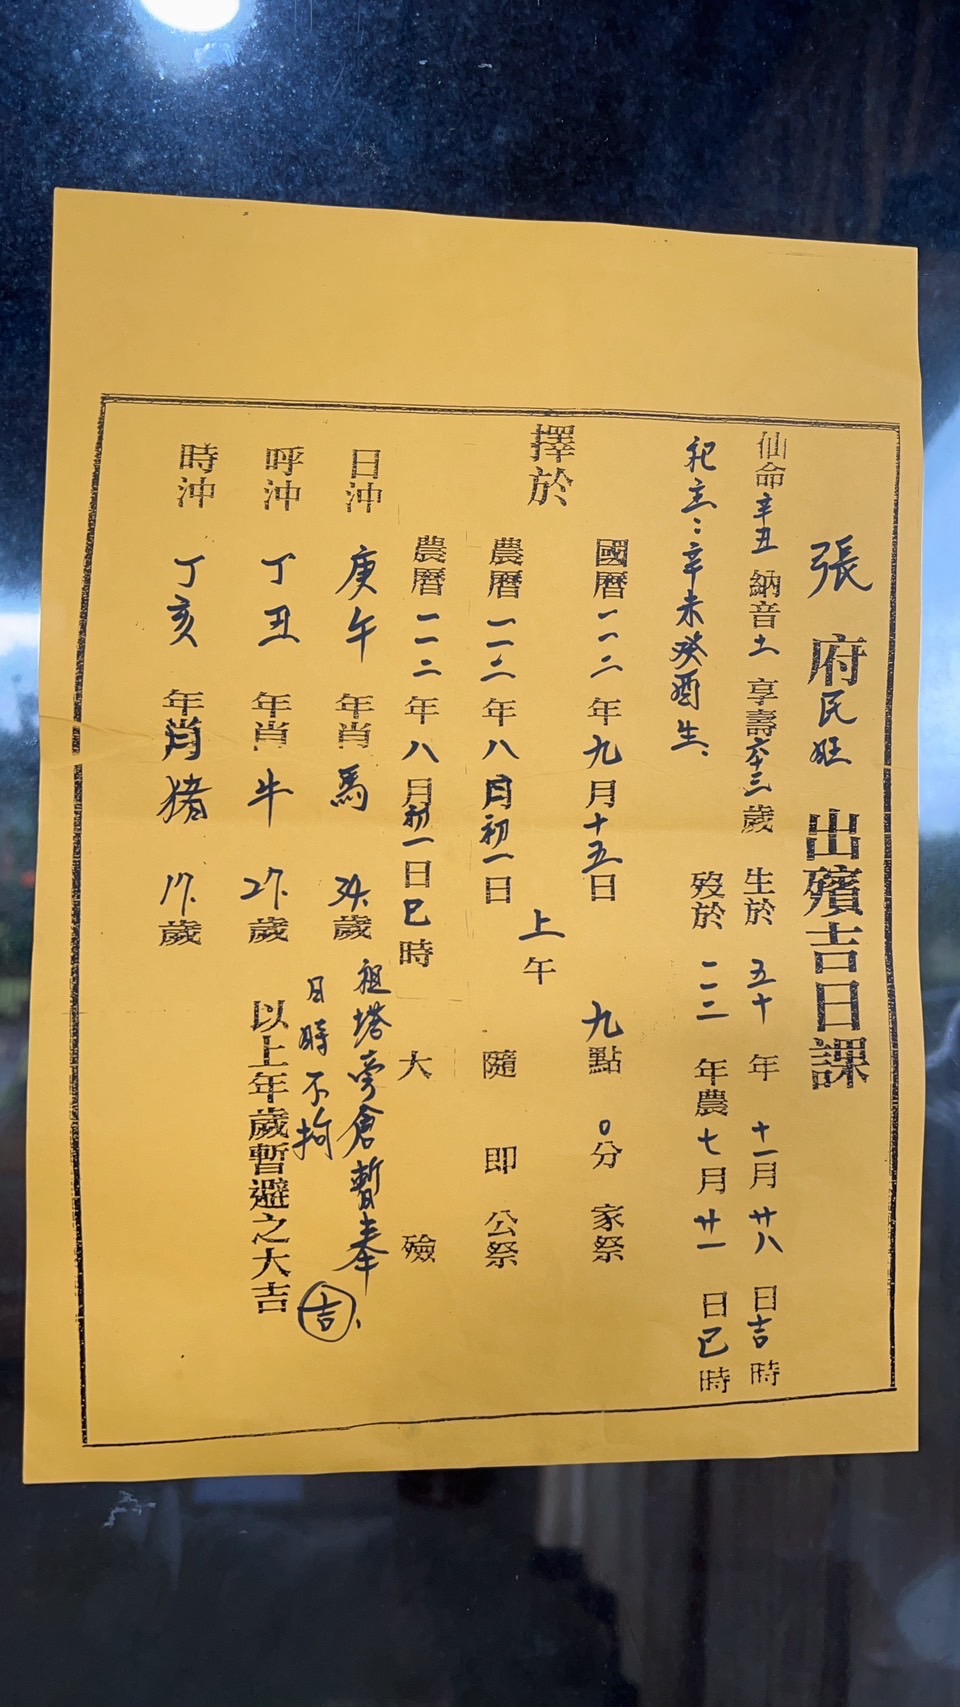 張府民旺出殯吉日課
仙命辛丑納音土享壽六十三歲生於五十年十一月廿八日吉時
歿於一一二年農七月廿一日巳時
祀主:辛未癸酉生、
擇於
國曆一一二年九月十五日上午九點0分家祭
農曆一一二年八月初一日隨即公祭
農曆一一二年八月初一日巳時大殮
日沖庚午年肖馬34.歲
呼沖丁丑年肖牛27.歲
時沖丁亥年肖猪17.歲
祖塔旁倉暫奉
日時不拘吉、
以上年歲暫避之大吉